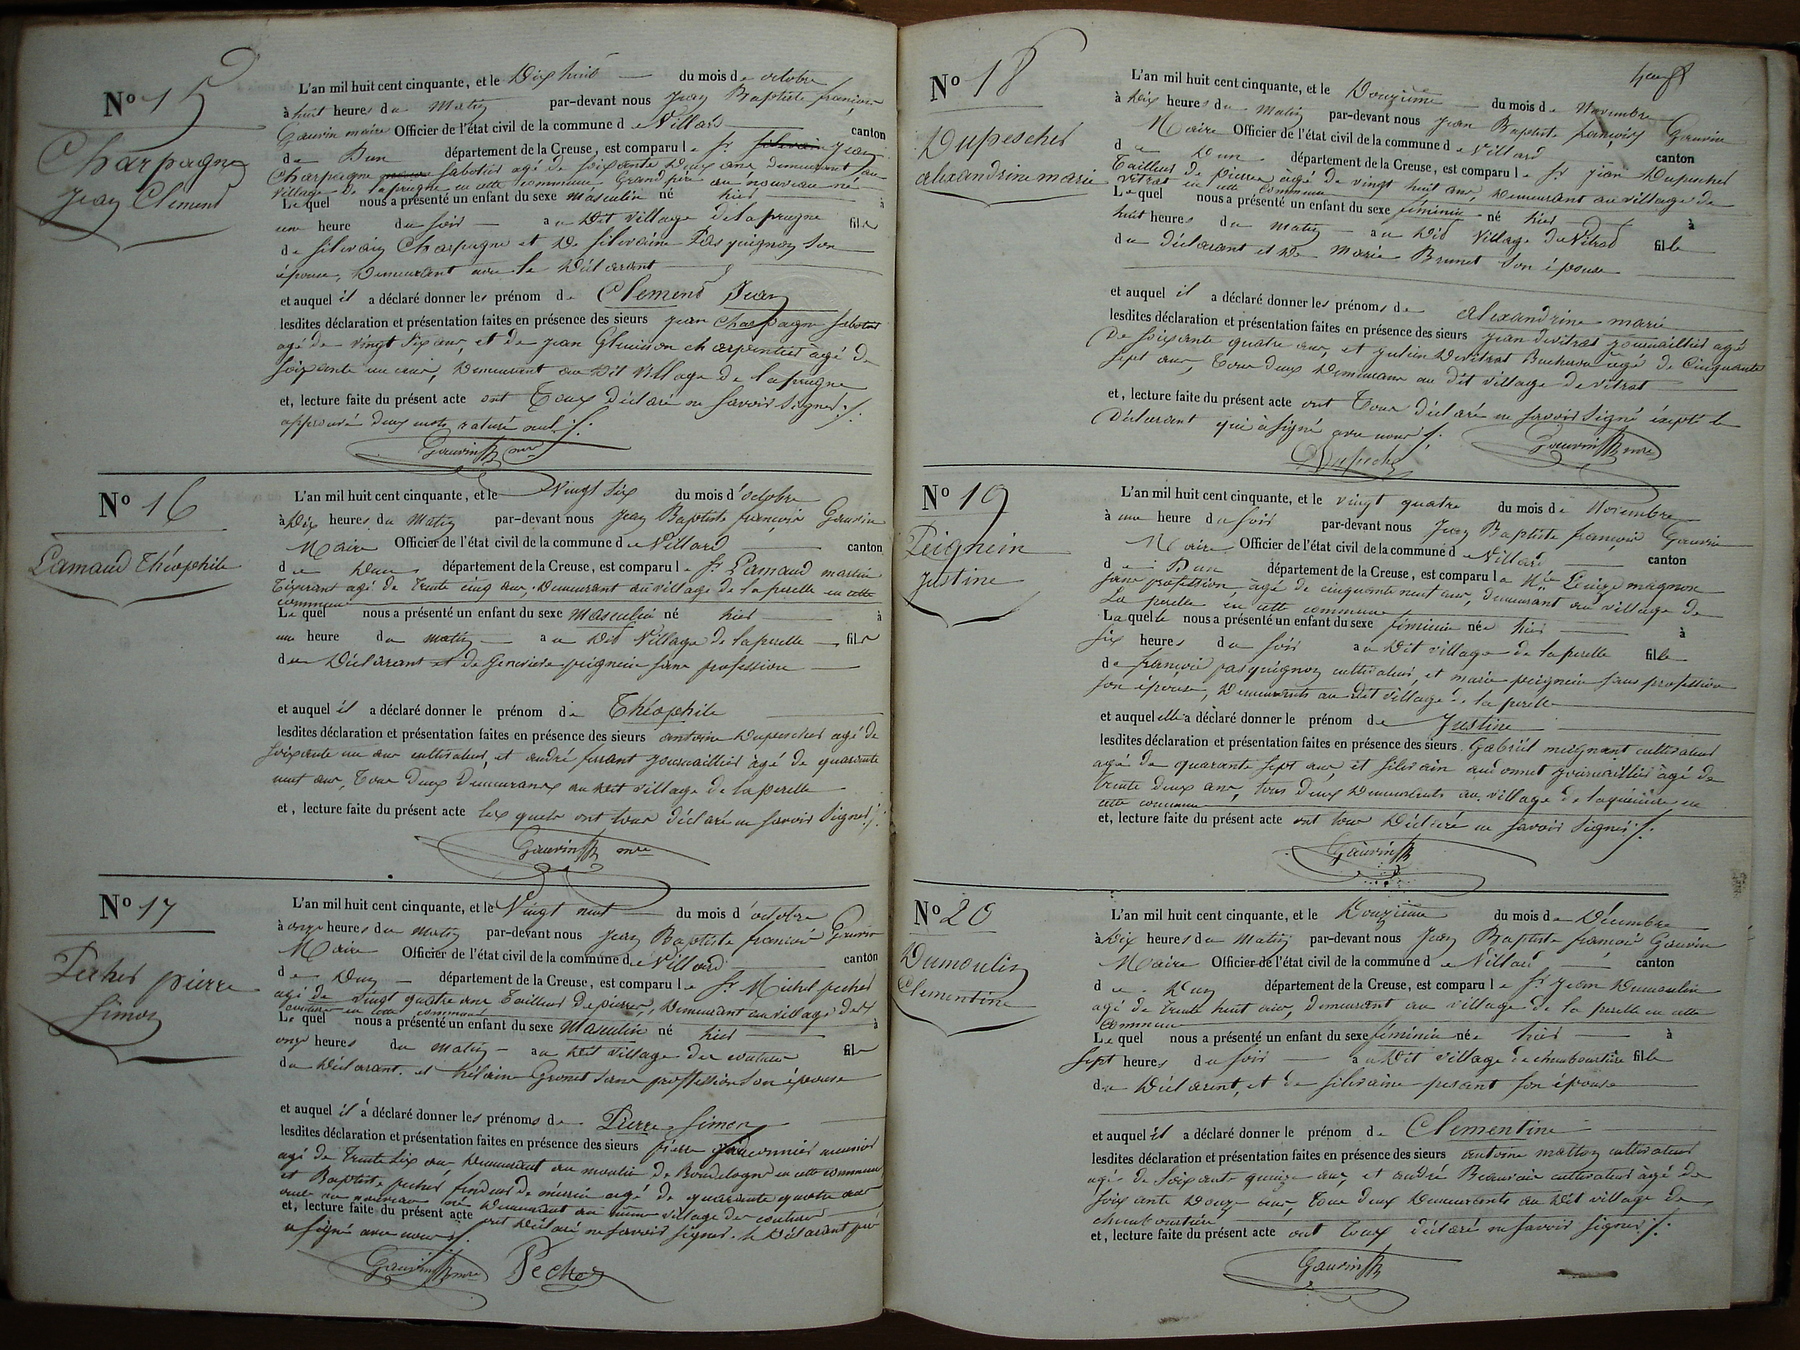 N° 15
Charpagne
Jean Clement
L'an mil huit cent cinquante, et le Dix huit du mois de octobre
à huit heures du Matin par-devant nous Jean Baptiste françois
Gauvin maire Officier de l'état civil de la commune de Villard canton
de Dun département de la Creuse, est comparu le Sr Jean
Charpagne sabotier agé de soixante Deux ans demeurant au
village de laprugne en cette commune Grand père au nouveau né
Lequel nous a présenté un enfant du sexe masculin né hier à
une heure du soir au Dit village de laprugne fils
de silvain Charpagne et de silvaine Pasquignon son
épouse, Demeurant avec le Déclarant
et auquel il a déclaré donner les prénom de Clement Jean
lesdites déclaration et présentation faites en présence des sieurs jean Charpagne sabotier
agé de vingt six ans, et de jean charpentier agé de
soixante un ans, Demeurant au Dit Village de laprugne
et, lecture faite du présent acte ont Tous Déclaré ne savoir signer ./.
approuvé deux mots raturé nul ./.
Gauvin mre
N° 16
Lamaud Théophile
L'an mil huit cent cinquante, et le Vingt six du mois d'octobre
à Dix heures du Matin par-devant nous Jean Baptiste françois Gauvin
Maire Officier de l'état civil de la commune de Villard canton
de Dun département de la Creuse, est comparu le Sr Lamaud martin
Tisserant agé de trente cinq ans, Demeurant au village de la perelle en cette
commune
Lequel nous a présenté un enfant du sexe Masculin né hier à
une heure du matin au Dit Village de laperelle fils
du Déclarant et de Genevieve peignein sans profession
et auquel il a déclaré donner le prénom de Théophile
lesdites déclaration et présentation faites en présence des sieurs antoine Dupeschet agé de
soixante un ans cultivateur, et andré journaillier agé de quarante
neuf ans, Tous deux demeurans au Dit village de laperelle
et, lecture faite du présent acte lesquels ont tous déclaré ne savoir signer ./.
Gauvin mre
N° 17
Pechet pierre
Simon
L'an mil huit cent cinquante, et le Vingt neuf du mois d'octobre
à onze heures du Matin par-devant nous Jean Baptiste françois Gauvin
Maire Officier de l'état civil de la commune de Villard canton
de Dun département de la Creuse, est comparu le Sr Michel pechet
agé de vingt quatre ans Tailleur de pierre, Demeurant au village des
coutures en cette commune
Lequel nous a présenté un enfant du sexe Masculin né hier à
onze heures du matin au Dit village des coutures fils
du Déclarant et Silvaine Gronet sans proffession son épouse
et auquel il a déclaré donner les prénoms de Pierre Simon
lesdites déclaration et présentation faites en présence des sieurs pierre meunier
agé de trente six ans, Demeurant au moulin de en cette commune
et Baptiste pechet agé de quarante quatre ans
oncle au nouveau né Demeurant au même village des coutures
et, lecture faite du présent acte ont Déclaré ne savoir signer. le Déclarant
a signé avec nous ./.
Gauvin mre Pechet
N° 18
Dupeschet
alexandrine marie
neuf
L'an mil huit cent cinquante, et le Douzième du mois de Novembre
à Dix heures du matin par-devant nous Jean Baptiste françois Gauvin
Maire Officier de l'état civil de la commune de Villard canton
de Dun département de la Creuse, est comparu le Sr jean Dupeschet
Tailleur de pierre agé de vingt huit ans, Demeurant au village de
vitrat en cette commune
Lequel nous a présenté un enfant du sexe féminin né hier à
huit heures du matin au Dit Village de Vitrat fille
du déclarant et de Marie Brunet son épouse
et auquel il a déclaré donner les prénoms de alexandrine marie
lesdites déclaration et présentation faites en présence des sieurs jean devitrat journaillier agé
De soixante quatre ans, et julien Devitrat Bucheron agé de Cinquante
sept ans, Tous deux Demeurans au dit village de vitrat
et, lecture faite du présent acte ont Tous déclaré ne savoir signé éxcepté le
Déclarant qui a signé avec nous ./.
Dupeche Gauvin mre
N° 19
Peignein
Justine
L'an mil huit cent cinquante, et le vingt quatre du mois de Novembre
à une heure du soir par-devant nous Jean Baptiste françois Gauvin
Maire Officier de l'état civil de la commune de Villard canton
de Dun département de la Creuse, est comparu la
sans profession, agée de cinquante neuf ans, demeurant au village de
La perelle en cette commune
Laquelle nous a présenté un enfant du sexe féminin née hier à
six heures du soir au Dit village de laperelle fille
de françois pasquignon cultivateur, et marie peignein sans profession
son épouse, Demeurants au dit village de la perelle
et auquel elle a déclaré donner le prénom de Justine
lesdites déclaration et présentation faites en présence des sieurs Gabriel meignant cultivateur
agé de quarante sept ans, et silvain audonnet journaillier agé de
trente deux ans, tous deux Demeurants au village de en
cette commune
et, lecture faite du présent acte ont tous Déclaré ne savoir signer ./.
Gauvin
N° 20
Dumoulin
Clementine
L'an mil huit cent cinquante, et le Douzième du mois de Décembre
à Dix heures du Matin par-devant nous Jean Baptiste françois Gauvin
Maire Officier de l'état civil de la commune de Villard canton
de Dun département de la Creuse, est comparu le Sr jean Dumoulin
agé de trente huit ans, demeurant au village de la perelle en cette
commune
Lequel nous a présenté un enfant du sexe féminin née hier à
sept heures du soir au Dit village de fille
du Déclarant, et de silvaine son épouse
et auquel il a déclaré donner le prénom de Clementine
lesdites déclaration et présentation faites en présence des sieurs antoine cultivateur
agé de soixante quinze ans, et andré cultivateur agé de
soixante Douze ans, Tous deux Demeurants au Dit village de
et, lecture faite du présent acte ont Tous déclaré ne savoir signer ./.
Gauvin